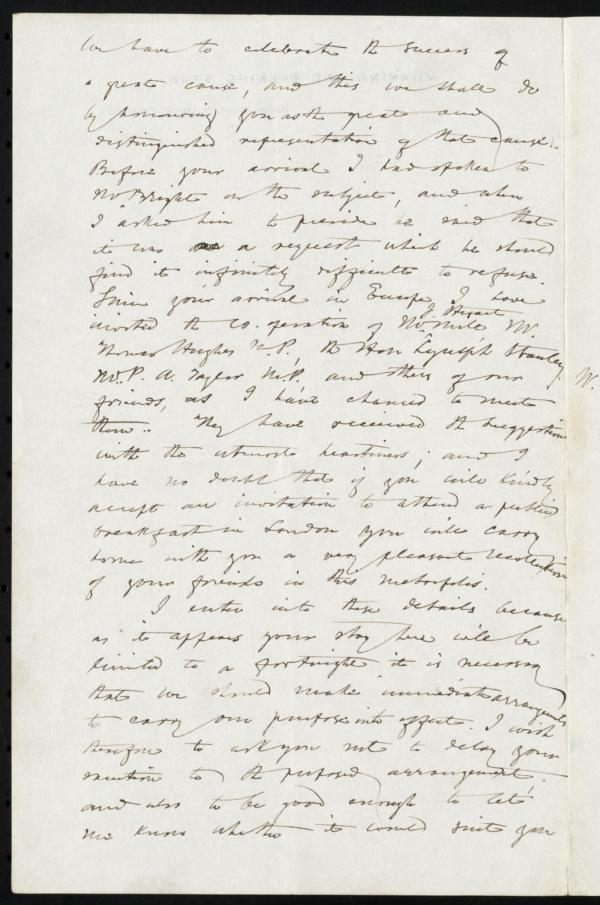 We have to celebrate the success of
a great cause, and this we shall do
by honouring you as the great and
distinguished representative of that cause.
Before your arrival I had spoken to
Mr Bright on the subject, and when
I asked him to preside he said that
it was a request which he should
find it infinitely difficult to refuse.
Since your arrival in Europe, I have
invited the co-operation of Mr J. Stuart Mill M.P.
Thomas Hughes M.P., the Hon Lyulph Stanley,
Mr. P. A. Taylor M.P. and others of our
friends, as I have chanced to meet
them. They have received the suggestion
with the utmost heartiness; and I
have no doubt that if you will kindly
accept an invitation to attend a public
breakfast in London you will carry
home with you a very pleasant recollection
of your friends in this metropolis.
I enter into these details because
as it appears your stay here will be
limited to a fortnight it is necessary
that we should make immediate arrangements
to carry our purpose into effect. I wish
therefore to ask you not to delay your
sanction to the proposed arrangement,
and also to be good enough to let
me know whether it would suit you
W.